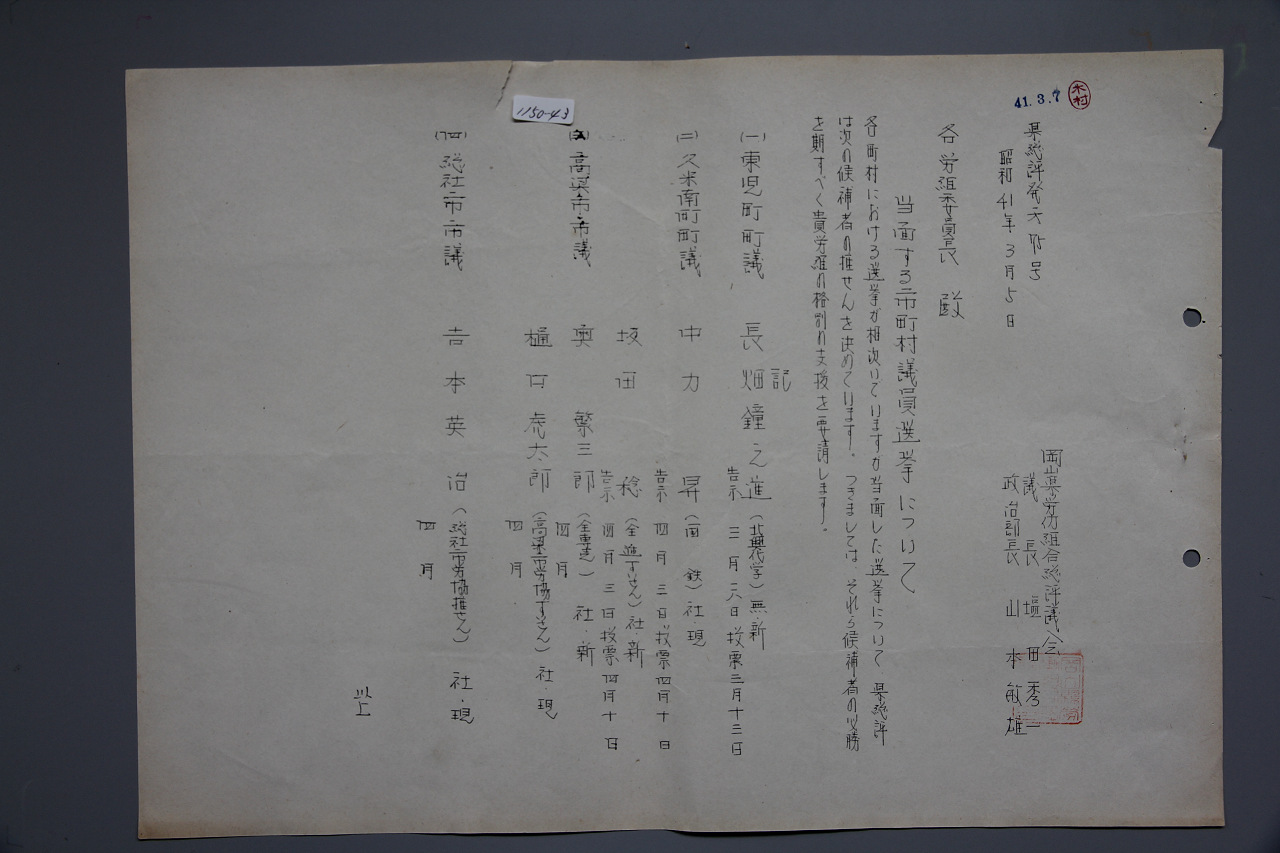 41.3.7
木村
1150-43
県総評発六 号
昭和41年3月5日
岡山県労仂組合総評議会
議長 塩田秀一
政治部長 山本敏雄
各労組委員長 殿
当面する市町村議員選挙について
各町村における選挙が相次いでいますが当面した選挙について 県総評
は次の候補者の推せんを決めています。つきましては、それら候補者の必勝
を期すべく貴労組の格別の支援を要請します。
記
(一) 東児町町議 長畑鐘之進 (北興化学) 無・新
告示 三月六日 投票三月十三日
(二) 久米南町町議 中力 昇 (国鉄) 社・現
告示 四月三日 投票四月十日
坂田 稔 (全逓すいせん) 社・新
告示 四月三日 投票四月十日
(三) 高梁市市議 奥 繁三郎 (全専売) 社・新
四月
樋口虎太郎 (高梁市労協すいせん) 社・現
四月
(四) 総社市市議 吉本英治 (総社市労協推せん) 社・現
四月
以上